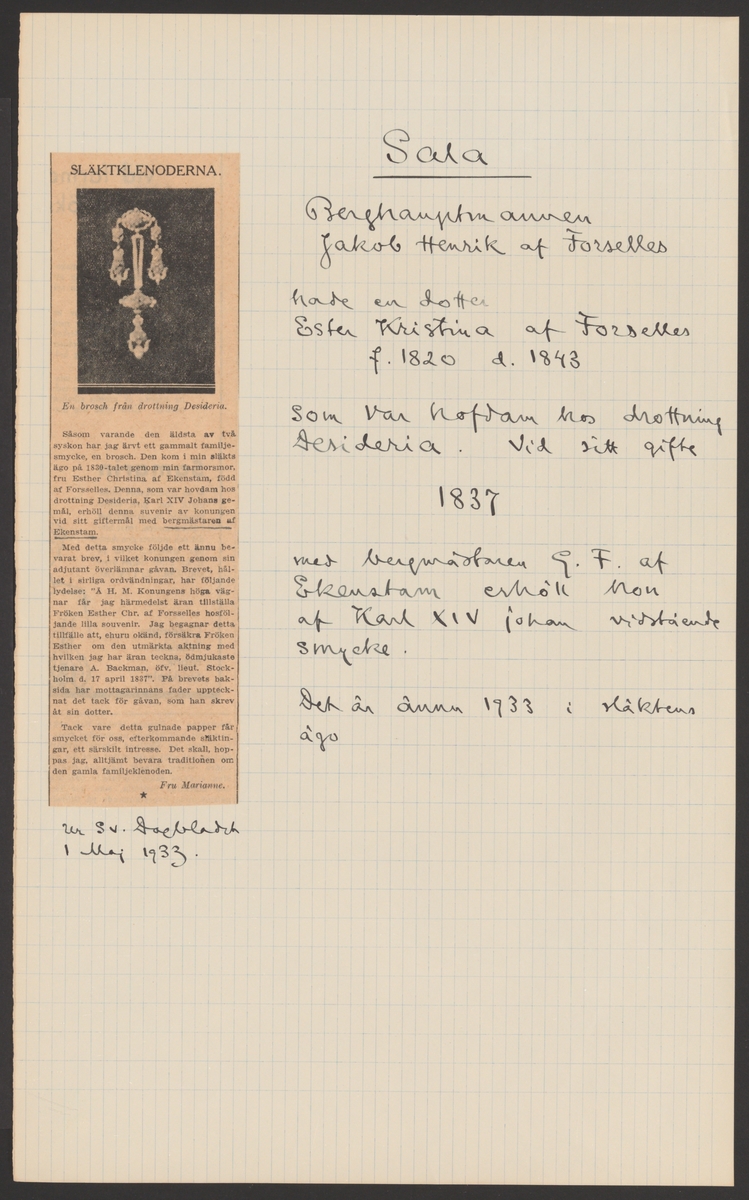 SLÄKTKLENODERNA.
En brosch från drottning Desideria.
Såsom varande den äldsta av två
syskon har jag ärvt ett gammalt familje-
smycke, en brosch. Den kom i min släkts
ägo på 1830-talet genom min farmorsmor,
fru Esther Christina af Ekenstam, född
af Forsselles. Denna, som var hovdam hos
drottning Desideria, Karl XIV Johans ge-
mål, erhöll denna suvenir av konungen
vid sitt giftermål med bergmästaren af
Ekenstam.
Med detta smycke följde ett ännu be-
varat brev, i vilket konungen genom sin
adjutant överlämnar gåvan. Brevet, hål-
let i sirliga ordvändningar, har följande
lydelse: "Å H. M. Konungens höga väg-
nar får jag härmedelst äran tillställa
Fröken Esther Chr. af Forsselles hosföl-
jande lilla souvenir. Jag begagnar detta
tillfälle att, ehuru okänd, försäkra Fröken
Esther om den utmärkta aktning med
hvilken jag har äran teckna, ödmjukaste
tjenare A. Backman, öfv. lieut. Stock-
holm d. 17 april 1837". På brevets bak-
sida har mottagarinnans fader uppteck-
nat det tack för gåvan, som han skrev
åt sin dotter.
Tack vare detta gulnade papper får
smycket för oss, efterkommande släktin-
gar, ett särskilt intresse. Det skall, hop-
pas jag, alltjämt bevara traditionen om
den gamla familjeklenoden.
Fru Marianne.
ur Sv. Dagbladet
1 Maj 1933.
Sala
Berghauptmannen
Jakob Henrik af Forselles
hade en dotter
Ester Kristina af Forselles
f. 1820 d. 1843
som var hofdam hos drottning
Desideria. Vid sitt gifte
1837
med bergmästaren G. F. af
Ekenstam erhöll hon
af Karl XIV Johan vidstående
smycke.
Det är ännu 1933 i släktens
ägo